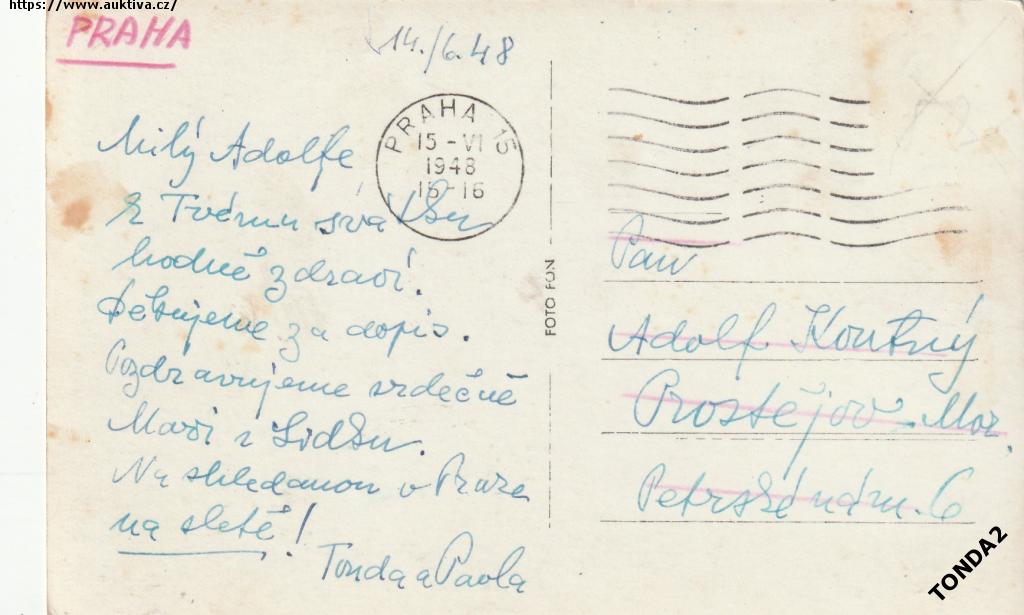 https://www.auktiva.cz/
PRAHA
14./6.48
PRAHA 15
15-VI
1948
15-16
Milý Adolfe
k Tvému svátku
hodně zdraví.
Děkujeme za dopis.
Pozdravujeme srdečně
Maři i Lidku.
Na shledanou v Praze
na sletě!
Tonda a Pavla
FOTO FON
Pan
Adolf Koutný
Prostějov - Mor.
Petrské nám. 6
TONDA2